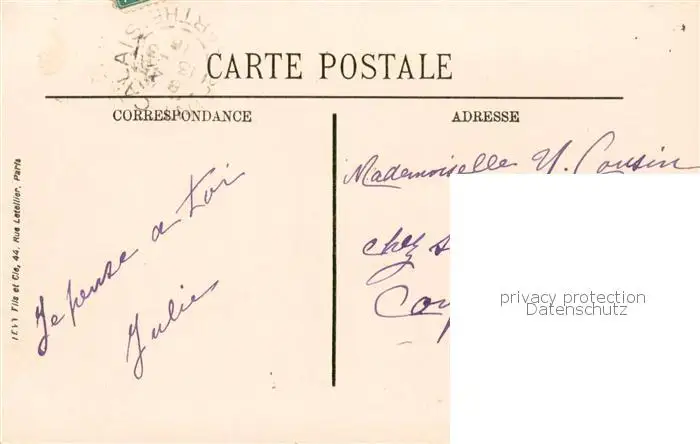 CALAIS
CARTE POSTALE
CORRESPONDANCE
ADRESSE
Je pense a toi
Julie
Mademoiselle Y. Cousin
chez
LEVY Fils et Cie, 44, Rue Letellier, Paris
privacy protection
Datenschutz